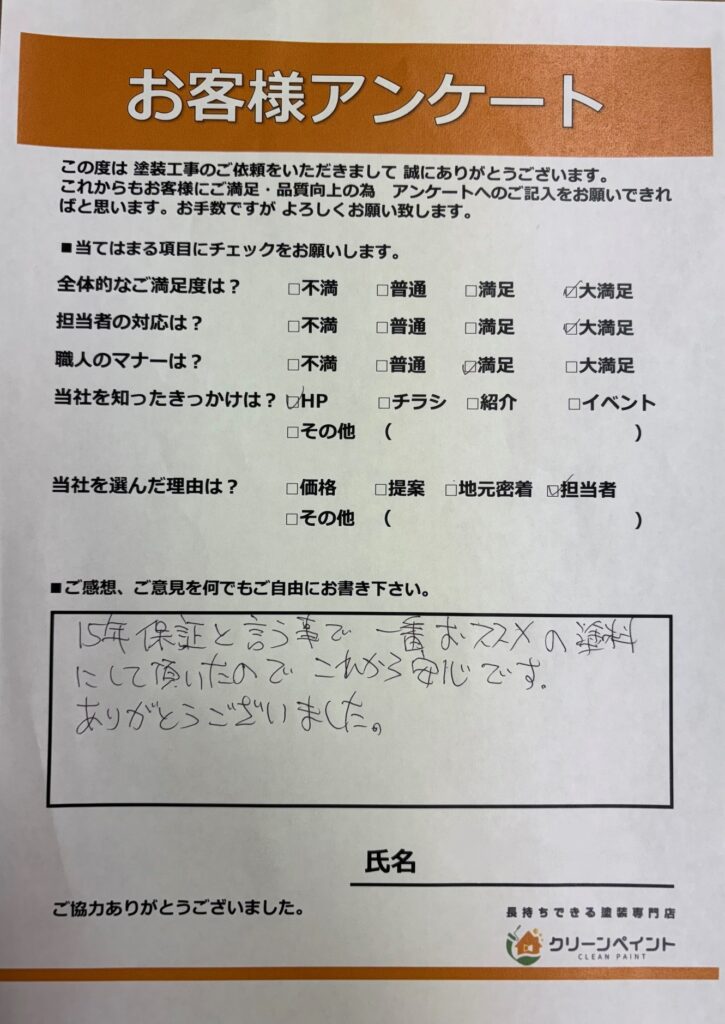 お客様アンケート
この度は 塗装工事のご依頼をいただきまして 誠にありがとうございます。
これからもお客様にご満足・品質向上の為　アンケートへのご記入をお願いできれ
ばと思います。お手数ですが よろしくお願い致します。
■当てはまる項目にチェックをお願いします。
全体的なご満足度は？ □不満 □普通 □満足 ☑大満足
担当者の対応は？ □不満 □普通 □満足 ☑大満足
職人のマナーは？ □不満 □普通 ☑満足 □大満足
当社を知ったきっかけは？ ☑HP □チラシ □紹介 □イベント
□その他 （ ）
当社を選んだ理由は？ □価格 □提案 □地元密着 ☑担当者
□その他 （ ）
■ご感想、ご意見を何でもご自由にお書き下さい。
15年保証と言う事で 一番おススメの塗料
にして頂いたので これから安心です.
ありがとうございました。
氏名
ご協力ありがとうございました。
長持ちできる塗装専門店
クリーンペイント
CLEAN PAINT